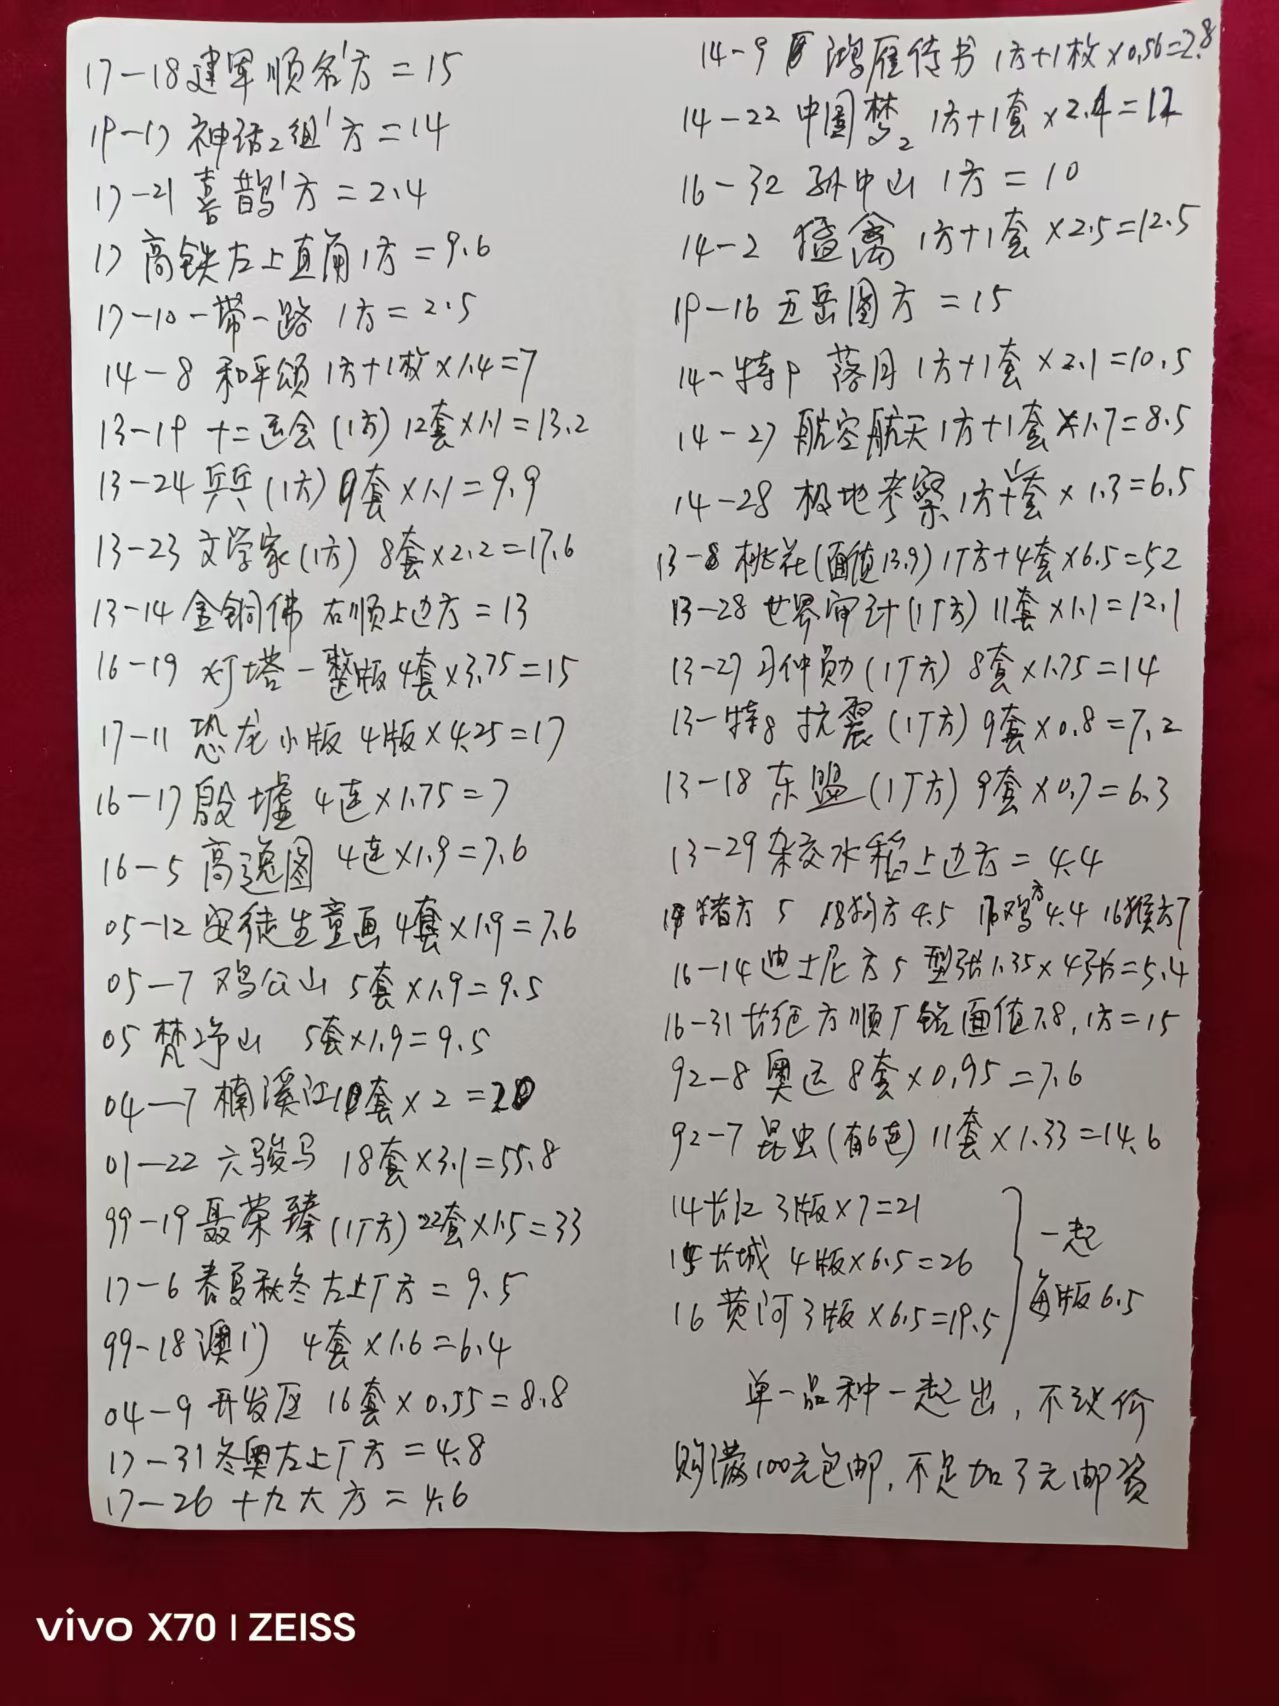 17-18建军顺铭1方=15
19-17 神话2组1方=14
17-21 喜鹊1方=2.4
17 高铁左上直角1方=9.6
17-10 一带一路 1方=2.5
14-8 和平颂 1方+1枚×1.4=7
13-19 十二运会(1方)12套×1.1=13.2
13-24 乒乓(1方)9套×1.1=9.9
13-23 文学家(1方) 8套×2.2=17.6
13-14 金铜佛 右顺上边方=13
16-19 灯塔一整版4套×3.75=15
17-11 恐龙小版 4版×4.25=17
16-17 殷墟 4连×1.75=7
16-5 高逸图 4连×1.9=7.6
05-12 安徒生童画 4套×1.9=7.6
05-7 鸡公山 5套×1.9=9.5
05 梵净山 5套×1.9=9.5
04-7 楠溪江10套×2=20
01-22 六骏马 18套×3.1=55.8
99-19 聂荣臻(1厂方)22套×1.5=33
17-6 春夏秋冬左上厂方=9.5
99-18澳门 4套×1.6=6.4
04-9 开发区 16套×0.55=8.8
17-31 冬奥左上厂方=4.8
17-26 十九大方=4.6
14-9 鸿雁传书 1方+1枚×0.56=2.8
14-22 中国梦2 1方+1套×2.4=12
16-32 孙中山 1方=10
14-2 猛禽 1方+1套×2.5=12.5
19-16 五岳图方=15
14-特9 落月 1方+1套×2.1=10.5
14-27 航空航天1方+1套×1.7=8.5
14-28 极地考察1方+1套×1.3=6.5
13-8 桃花(面值13.9)1厂方+4套×6.5=52
13-28 世界审计(1厂方)11套×1.1=12.1
13-27 习仲勋(1厂方)8套×1.75=14
13-特8 抗震(1厂方)9套×0.8=7.2
13-18 东盟(1厂方)9套×0.7=6.3
13-29杂交水稻上边方=4.4
19猪方 5 18狗方4.5 17鸡方4.4 16猴方7
16-14迪士尼方5 型张1.35×4张=5.4
16-31长征方顺厂铭面值7.8,1方=15
92-8 奥运 8套×0.95=7.6
92-7 昆虫(有6连)11套×1.33=14.6
14长江 3版×7=21
15长城 4版×6.5=26
16 黄河3版×6.5=19.5
一起
每版6.5
单一品种一起出,不议价
购满100元包邮,不足加3元邮资
vivo X70 | ZEISS